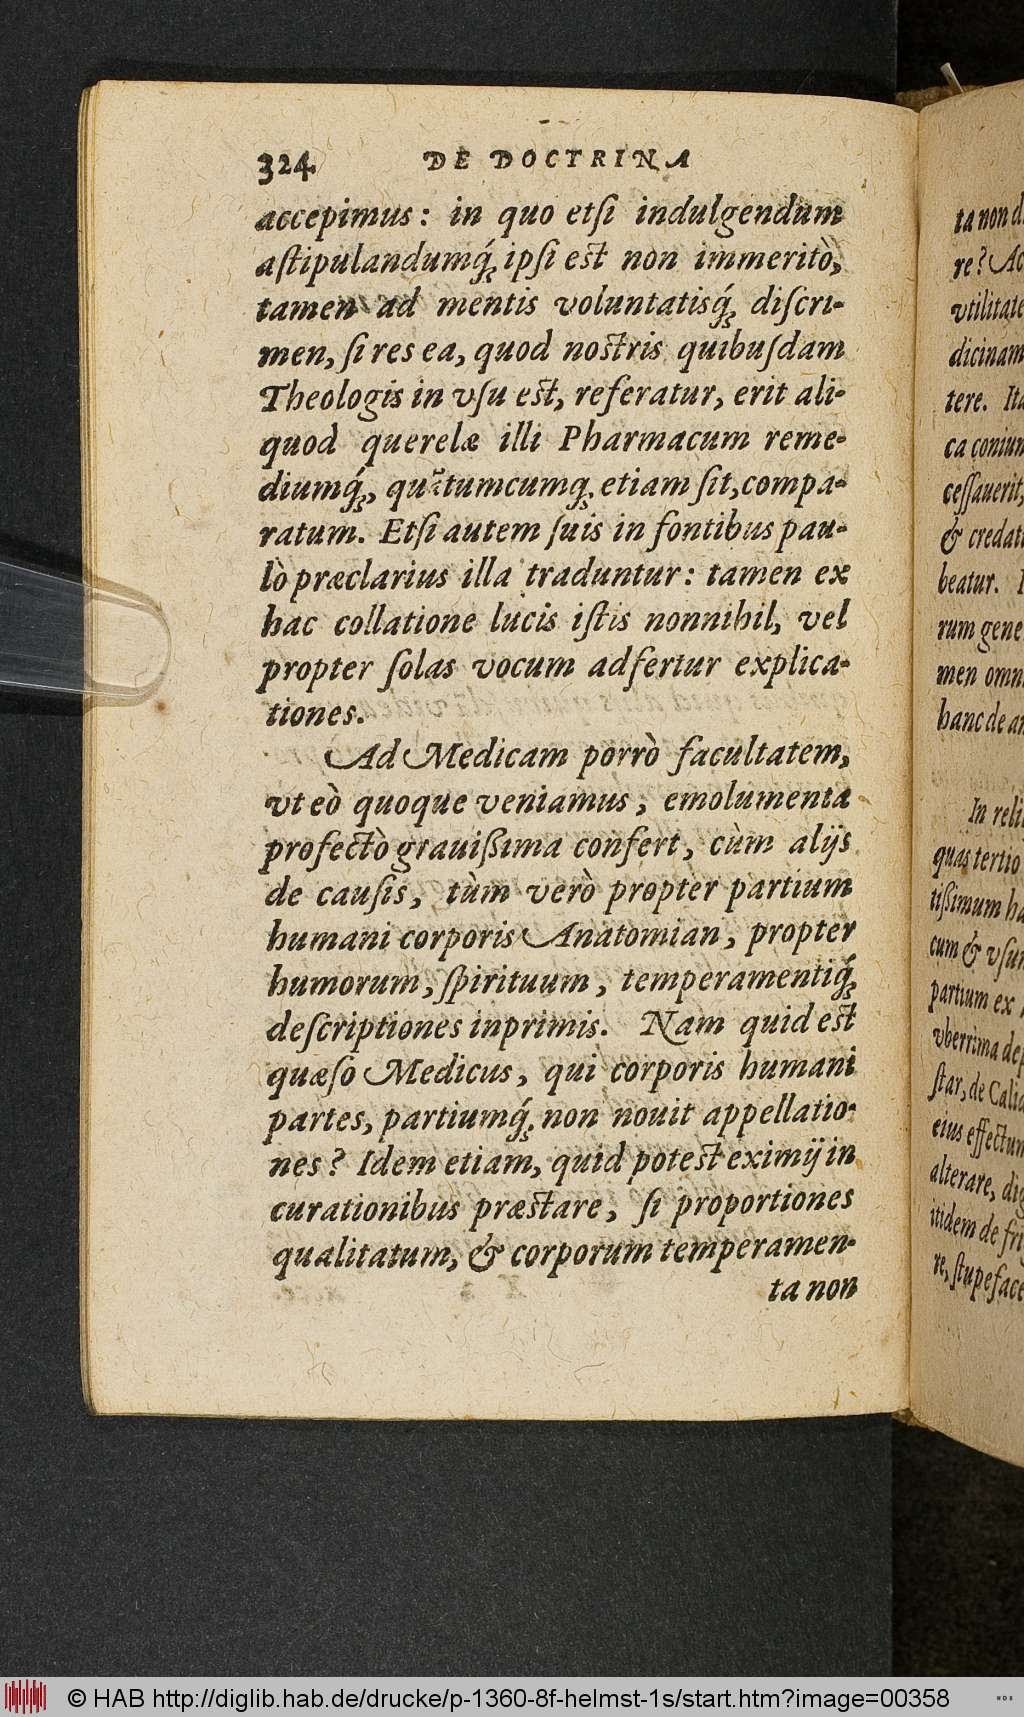 324 DE DOCTRINA
accepimus: in quo etſi indulgendum
aſtipulandumq́; ipſi est non immeritò,
tamen ad mentis voluntatisq́; diſcri-
men, ſi res ea, quod nostris quibuſdam
Theologis in vſu est, referatur, erit ali-
quod querelæ illi Pharmacum reme-
diumq́;, quãtumcumq; etiam ſit, compa-
ratum. Etſi autem ſuis in fontibus pau-
lò præclarius illa traduntur: tamen ex
hac collatione lucis iſtis nonnihil, vel
propter ſolas vocum adfertur explica-
tiones.
Ad Medicam porrò facultatem,
vt eò quoque veniamus, emolumenta
profectò grauißima confert, cùm alijs
de cauſis, tùm verò propter partium
humani corporis Anatomian, propter
humorum, ſpirituum, temperamentiq́;
deſcriptiones inprimis. Nam quid est
quæſo Medicus, qui corporis humani
partes, partiumq́; non nouit appellatio-
nes? Idem etiam, quid potest eximij in
curationibus præstare, ſi proportiones
qualitatum, & corporum temperamen-
ta non
ta non d
re? Ac
vtilitate
dicinam
tere. Ita
ca coniun
ceſſauerit,
& credat
beatur.
rum gene
men omn
hanc de an
In reli
quas tertio
tißimum ha
cum & vſum
partium ex
vberrima deſ
ſtar, de Calid
eius effectum
alterare, dig
itidem de fri
re, ſtupeface
© HAB http://diglib.hab.de/drucke/p-1360-8f-helmst-1s/start.htm?image=00358